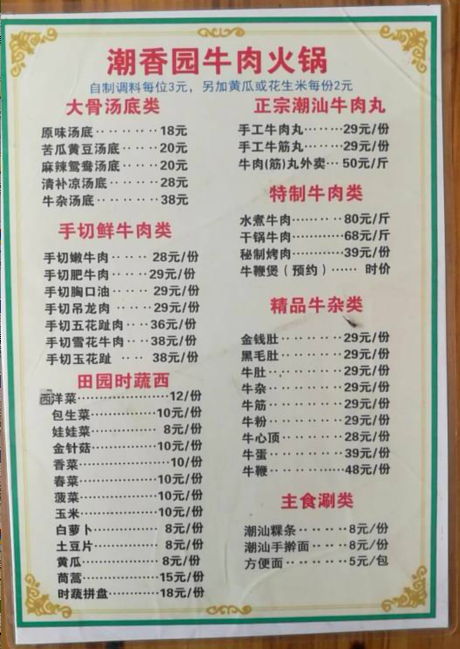 潮香园牛肉火锅
自制调料每位3元，另加黄瓜或花生米每份2元
大骨汤底类
原味汤底·········18元
苦瓜黄豆汤底····20元
麻辣鸳鸯汤底····20元
清补凉汤底······28元
牛杂汤底········38元
手切鲜牛肉类
手切嫩牛肉·····28元/份
手切肥牛肉·····29元/份
手切胸口油·····29元/份
手切吊龙肉·····29元/份
手切五花趾肉···36元/份
手切雪花牛肉···38元/份
手切玉花趾 ··· 38元/份
田园时蔬西
西洋菜··········12/份
包生菜··········10元/份
娃娃菜·········· 8元/份
金针菇··········10元/份
香菜············10/份
春菜············10元/份
菠菜············10元/份
玉米············10元/份
白萝卜·········· 8元/份
土豆片·········· 8元/份
黄瓜············8元/份
茼蒿············15元/份
时蔬拼盘········18元/份
正宗潮汕牛肉丸
手工牛肉丸······29元/份
手工牛筋丸······29元/份
牛肉(筋)丸外卖··· 50元/斤
特制牛肉类
水煮牛肉········80元/斤
干锅牛肉········68元/斤
秘制烤肉········39元/份
牛鞭煲（预约）······ 时价
精品牛杂类
金钱肚··········29元/份
黑毛肚··········29元/份
牛肚············29元/份
牛杂············29元/份
牛筋············29元/份
牛粉············29元/份
牛心顶··········28元/份
牛蛋············39元/份
牛鞭············48元/份
主食涮类
潮汕粿条·······8元/份
潮汕手擀面·····8元/份
方便面·········5元/包